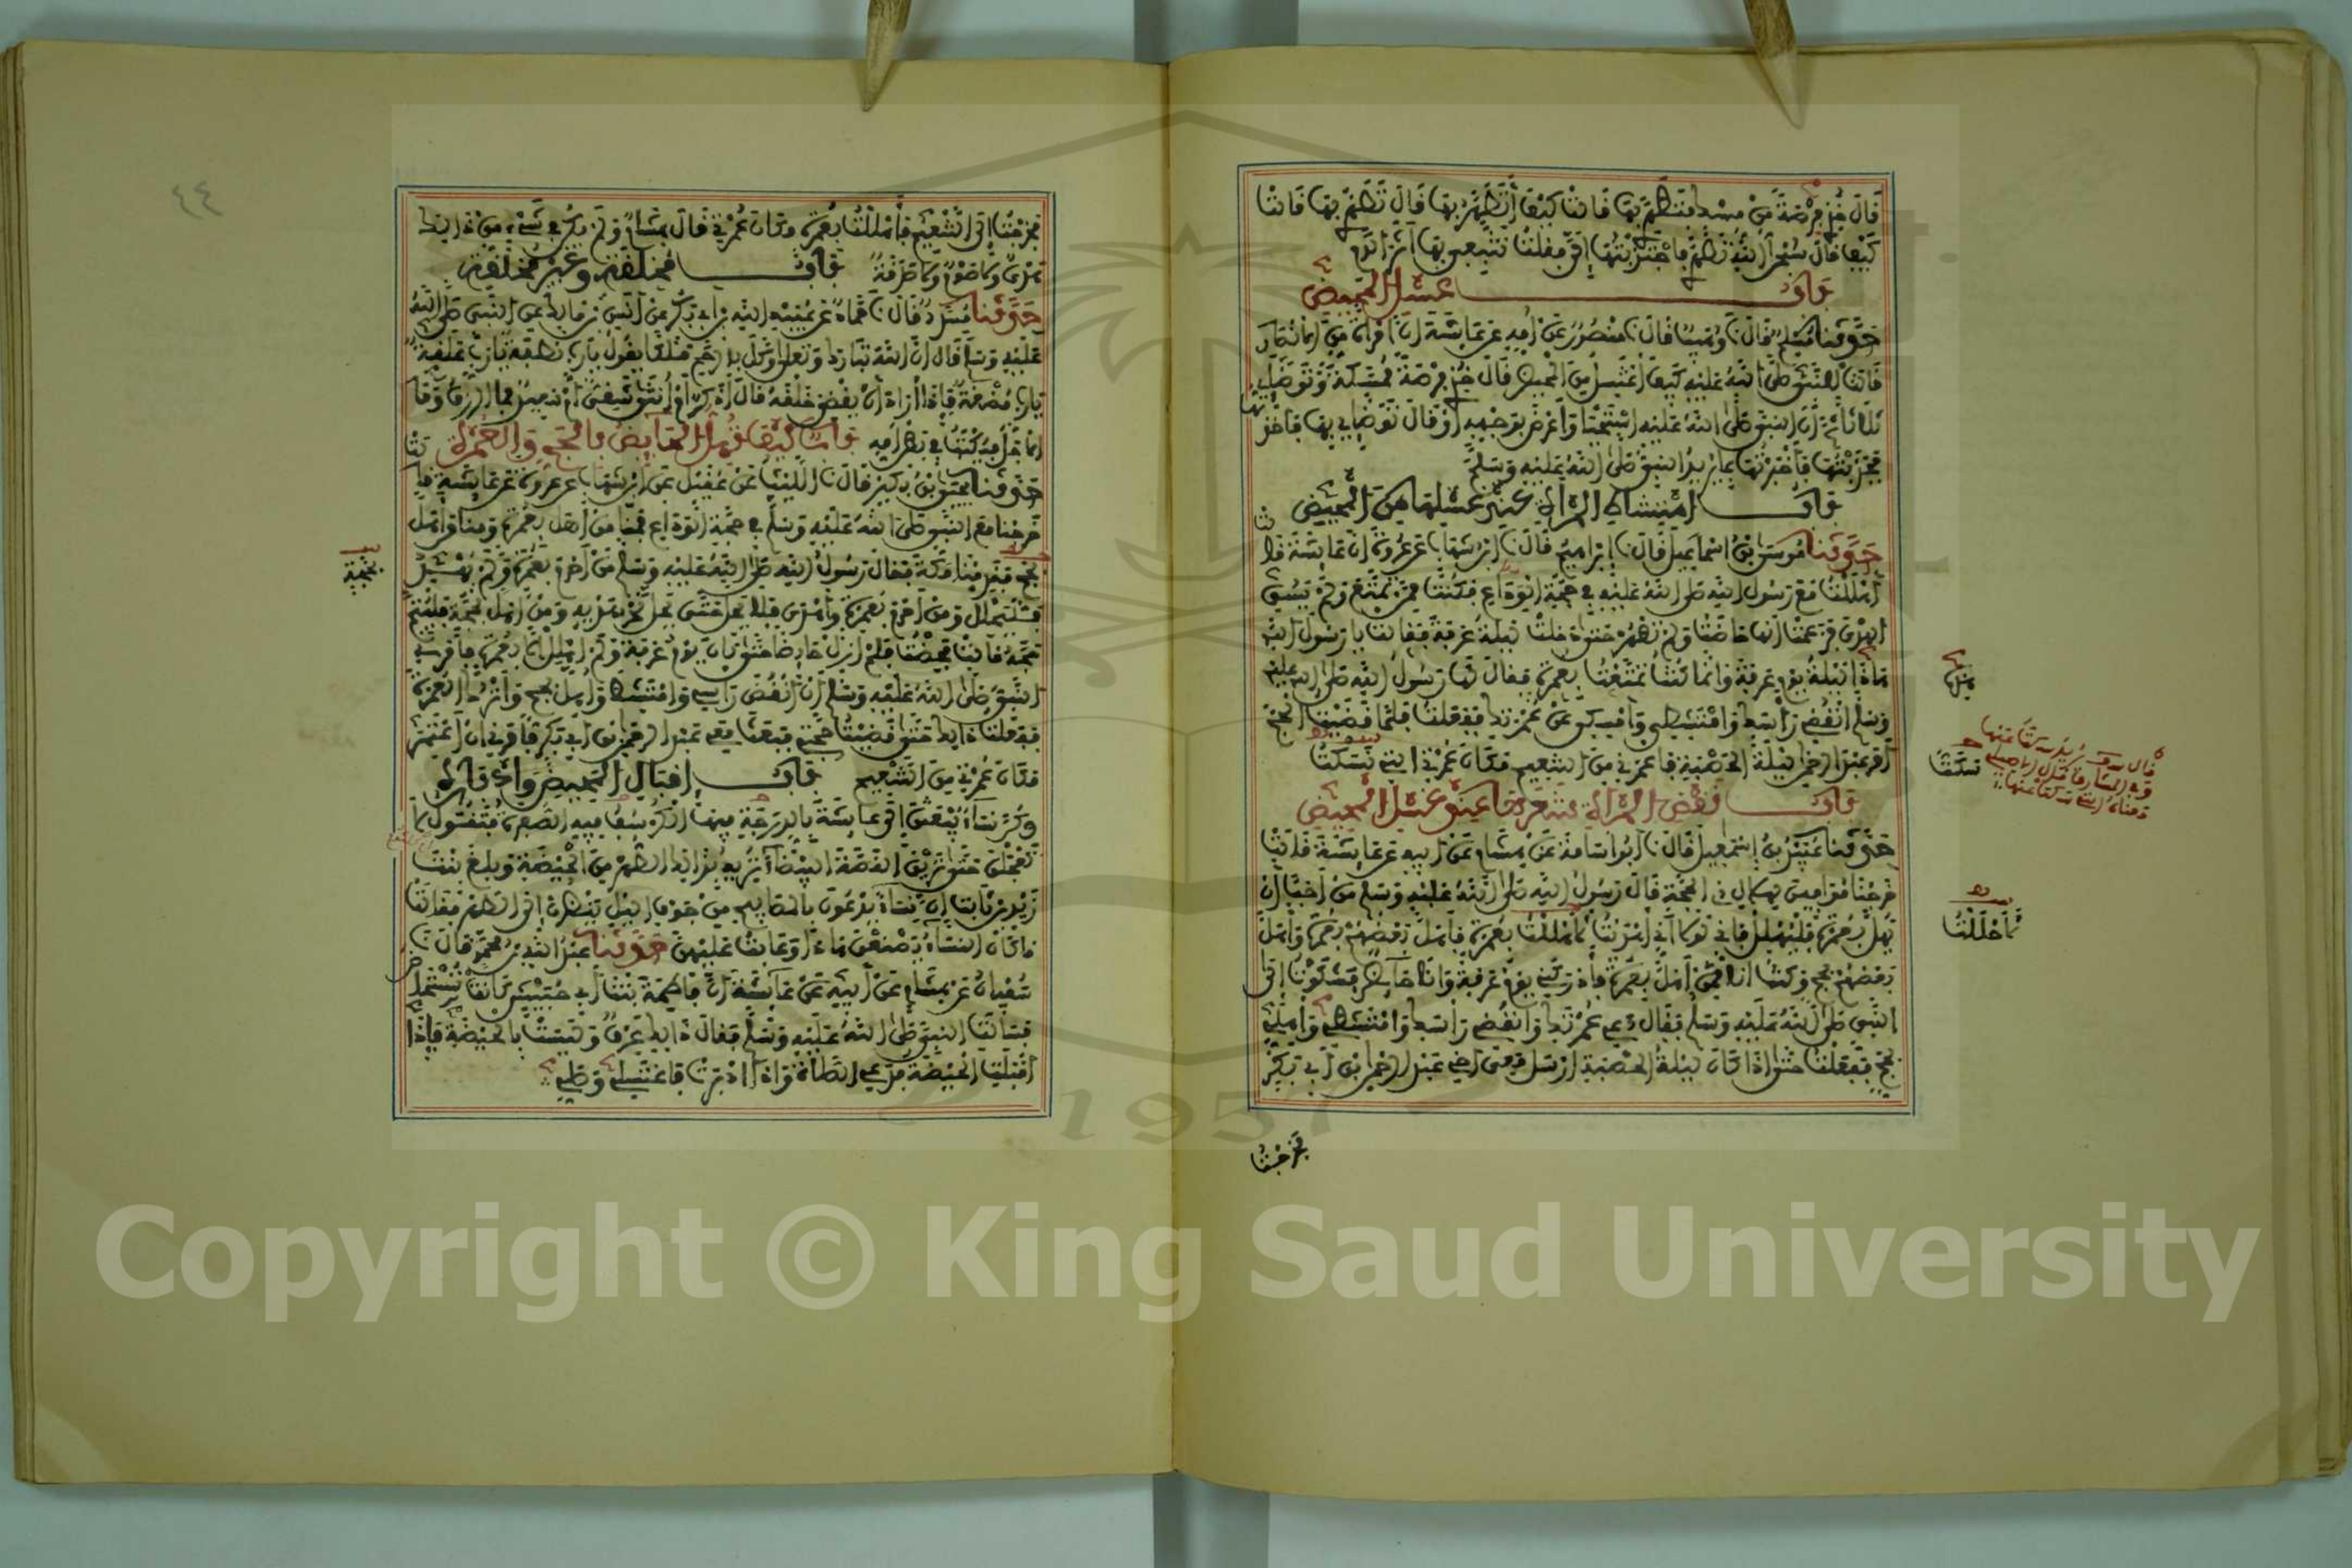 قال خذي فرصة من مسك فتطهري بها قالت كيف أتطهر بها قال تطهري بها قالت
كيف قال سبحان الله تطهري فاجتذبتها إلي فقلت تتبعي بها أثر الدم
باب غسل المحيض
حدثنا مسلم قال نا وهيب قال نا منصور عن أمه عن عائشة أن امرأة من الأنصار
قالت للنبي صلى الله عليه كيف أغتسل من المحيض قال خذي فرصة ممسكة وتوضئي
ثلاثا ثم إن النبي صلى الله عليه استحيا وأعرض بوجهه أو قال توضئي بها فأخذتها
فجذبتها فأخبرتها بما يريد النبي صلى الله عليه وسلم
باب امتشاط المرأة عند غسلها من المحيض
حدثنا موسى بن إسماعيل قال نا إبراهيم قال نا ابن شهاب عن عروة أن عائشة قالت
أهللت مع رسول الله صلى الله عليه في حجة الوداع فكنت ممن تمتع ولم يسق
الهدي فزعمت أنها حاضت ولم تطهر حتى دخلت ليلة عرفة فقالت يا رسول الله
هذه ليلة يوم عرفة وإنما كنت تمتعت بعمرة فقال لها رسول الله صلى الله عليه
وسلم انقضي رأسك وامتشطي وأمسكي عن عمرتك ففعلت فلما قضيت الحج
أمر عبد الرحمن ليلة الحصبة فأعمرني من التنعيم مكان عمرتي التي نسكت
باب نقض المرأة شعرها عند غسل المحيض
حدثنا عبيد بن إسمعيل قال نا أبو أسامة عن هشام عن أبيه عن عائشة قالت
خرجنا موافين لهلال ذي الحجة قال رسول الله صلى الله عليه وسلم من أحب أن
يهل بعمرة فليهلل فإني لولا أني أهديت لأهللت بعمرة فأهل بعضهم بعمرة وأهل
بعضهم بحج وكنت أنا ممن أهل بعمرة فأدركني يوم عرفة وأنا حائض فشكوت إلى
النبي صلى الله عليه وسلم فقال دعي عمرتك وانقضي رأسك وامتشطي وأهلي
بحج ففعلت حتى إذا كان ليلة الحصبة أرسل معي أخي عبد الرحمن بن أبي بكر
فخرجت
سكت
لأحللت
٤٤
فخرجت إلى التنعيم فأهللت بعمرة مكان عمرتي قال هشام ولم يكن في شيء من ذلك
هدي ولا صوم ولا صدقة باب مخلقة وغير مخلقة
حدثنا مسدد قال نا حماد عن عبيد الله بن أبي بكر عن أنس بن مالك عن النبي صلى الله
عليه وسلم قال إن الله تبارك وتعالى وكل بالرحم ملكا يقول يا رب نطفة يا رب علقة
يا رب مضغة فإذا أراد أن يقضي خلقه قال أذكر أم أنثى شقي أم سعيد فما الرزق وما
الأجل فيكتب في بطن أمه باب كيف تهل الحائض بالحج والعمرة
حدثنا يحيى بن بكير قال نا الليث عن عقيل عن ابن شهاب عن عروة عن عائشة قالت
خرجنا مع النبي صلى الله عليه وسلم في حجة الوداع فمنا من أهل بعمرة ومنا من أهل
بحج فقدمنا مكة فقال رسول الله صلى الله عليه وسلم من أحرم بعمرة ولم يهد
فليحلل ومن أحرم بعمرة وأهدى فلا يحل حتى يحل نحر هديه ومن أهل بحجة فليتم
حجه قالت فحضت فلم أزل حائضا حتى كان يوم عرفة ولم أهلل إلا بعمرة فأمرني
النبي صلى الله عليه وسلم أن أنقض رأسي وأمتشط وأهل بحج وأترك العمرة
ففعلت ذلك حتى قضيت حجتي فبعث معي عبد الرحمن بن أبي بكر فأمرني أن أعتمر
مكان عمرتي من التنعيم باب إقبال المحيض وإدباره
وكن نساء يبعثن إلى عائشة بالدرجة فيها الكرسف فيه الصفرة فتقول لا
تعجلن حتى ترين القصة البيضاء تريد بذلك الطهر من الحيضة وبلغ بنت
زيد بن ثابت أن نساء يدعون بالمصابيح من جوف الليل ينظرن إلى الطهر فقالت
ما كان النساء يصنعن هذا وعابت عليهن حدثنا عبد الله بن محمد قال نا
سفيان عن هشام عن أبيه عن عائشة أن فاطمة بنت أبي حبيش كانت تستحاض
فسألت النبي صلى الله عليه وسلم فقال ذلك عرق وليست بالحيضة فإذا
أقبلت الحيضة فدعي الصلاة وإذا أدبرت فاغتسلي وصلي
بحجة
Copyright © King Saud University
1957